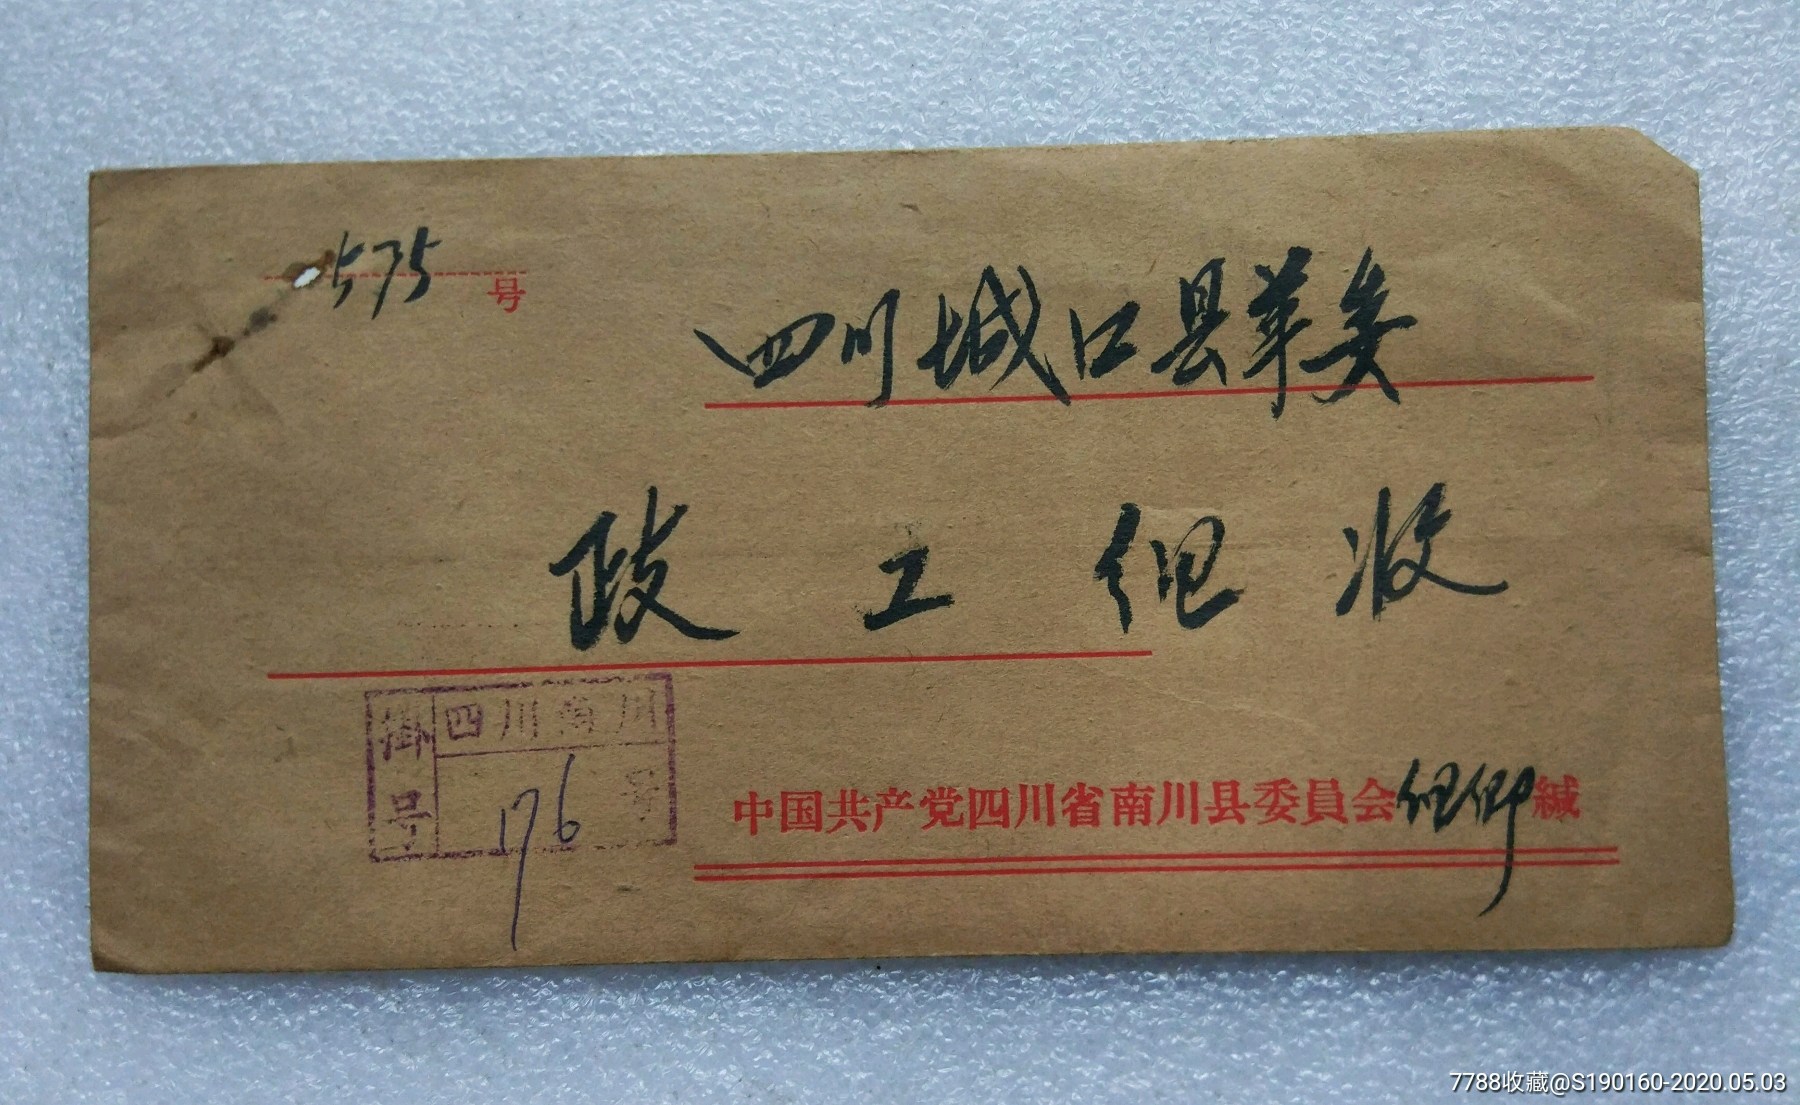 575
号
四川城口县革委
政工组收
掛号
四川南川
176 号
中国共产党四川省南川县委員会组织緘
7788收藏@S190160-2020.05.03